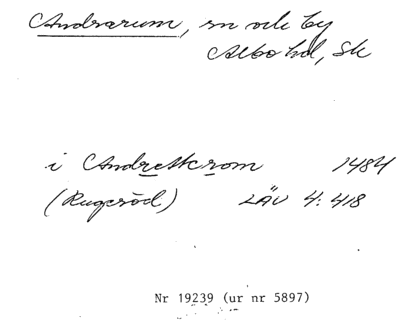 Andrarum, sn och by
Albo hd, Sk
i Andrettcrom 1484
(Rugeröd) LÄU 4: 418
Nr 19239 (ur nr 5897)